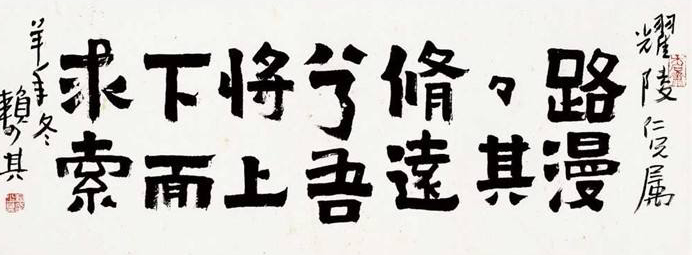 耀陵仁兄属
路漫
々其
脩遠
兮吾
将上
下而
求索
羊年冬
賴少其